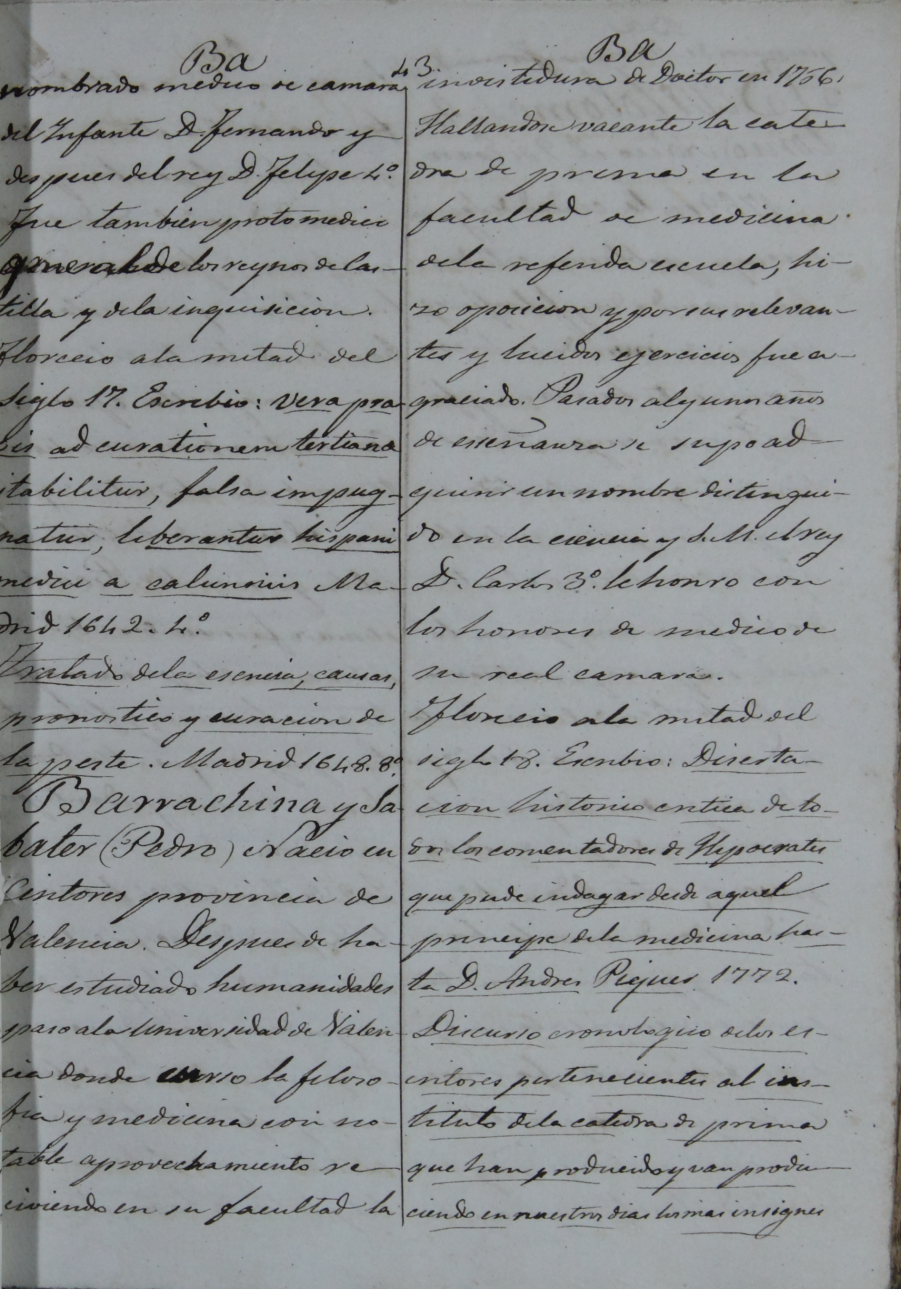 Ba
nombrado medico de camara
del Infante D. Fernando y
despues del rey D. Felipe 4.º
Fue tambien protomedico
general de los reynos de Cas-
tilla y de la inquisicion.
Florecio a la mitad del
siglo 17. Escribio: vera pra-
xis ad curationem tertiana
stabilitur, falsa impug-
natur, liberantur hispani
medici a calumniis Ma-
drid 1642. 4.º
Tratado de la esencia, causas,
pronostico y curacion de
la peste. Madrid 1648. 8.º
Barrachina y Sa-
bater (Pedro) Nacio en
Cintores provincia de
Valencia. Despues de ha-
ber estudiado humanidades
paso a la Universidad de Valen-
cia donde curso la filoso-
fia y medicina con no-
table aprovechamiento re-
civiendo en su facultad la
43.
Ba
investidura de Doctor en 1756.
Hallandose vacante la cate-
dra de prima en la
facultad de medicina
de la referida escuela, hi-
zo oposicion y por sus relevan-
tes y lucidos ejercicios fue a-
graciado. Pasados algunos años
de enseñanza se supo ad-
quirir un nombre distingui-
do en la ciencia y S. M. el rey
D. Carlos 3.º le honro con
los honores de medico de
su real camara.
Florecio a la mitad del
siglo 18. Escribio: Diserta-
cion historico critica de to-
dos los comentadores de Hipocrates
que pude indagar desde aquel
principe de la medicina has-
ta D. Andres Piquer 1772.
Discurso cronologico de los es-
critores pertenecientes al ins-
tituto de la catedra de prima
que han producido y van produ-
ciendo en nuestros dias los mas insignes